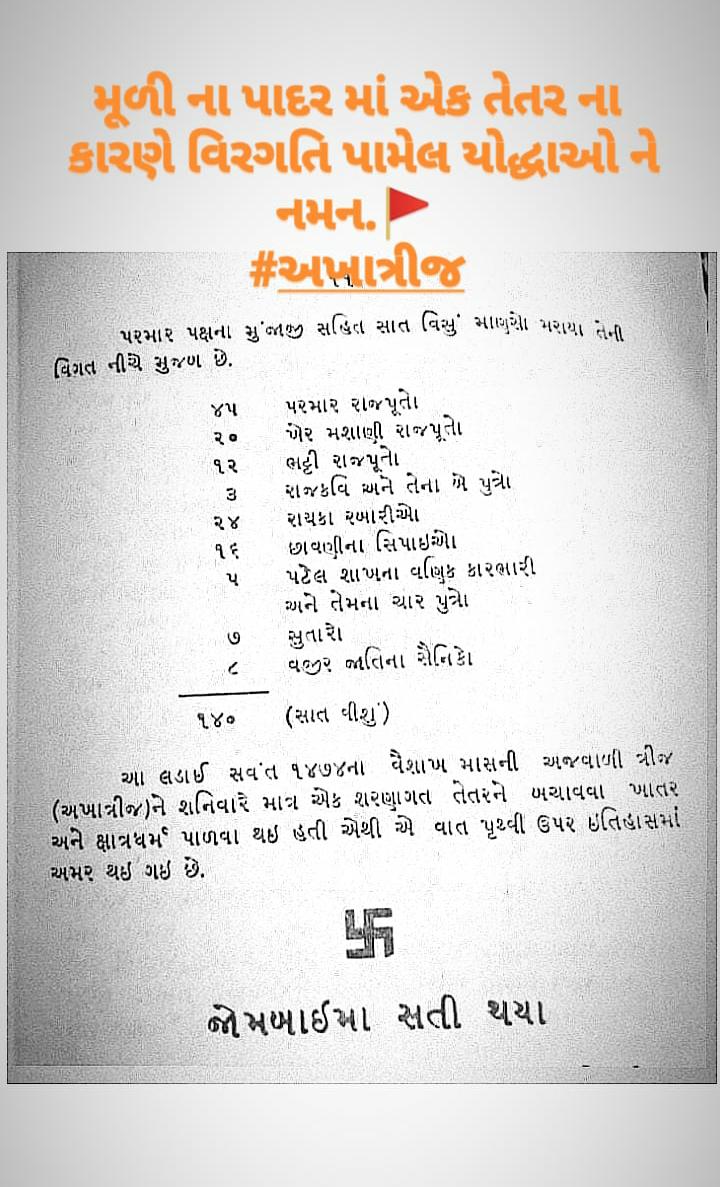 મૂળી ના પાદર માં એક તેતર ના
કારણે વિરગતિ પામેલ યોદ્ધાઓ ને
નમન.🚩
#અખાત્રીજ
પરમાર પક્ષના મુંજાજી સહિત સાત વિસું માણસો મરાયા તેની
વિગત નીચે મુજબ છે.
૪૫ પરમાર રાજપૂતો
૨૦ ખેર મશાણી રાજપૂતો
૧૨ ભટ્ટી રાજપૂતો
૩ રાજકવિ અને તેના બે પુત્રો
૨૪ રાયકા રબારીઓ
૧૬ છાવણીના સિપાઇઓ
૫ પટેલ શાખના વણિક કારભારી
અને તેમના ચાર પુત્રો
૭ સુતારો
૮ વજીર જાતિના સૈનિકો
૧૪૦ (સાત વીશું)
આ લડાઈ સવંત ૧૪૭૪ના વૈશાખ માસની અજવાળી ત્રીજ
(અખાત્રીજ)ને શનિવારે માત્ર એક શરણાગત તેતરને બચાવવા ખાતર
અને ક્ષાત્રધર્મ પાળવા થઇ હતી એથી એ વાત પૃથ્વી ઉપર ઇતિહાસમાં
અમર થઇ ગઇ છે.
卐
જોમબાઈમા સતી થયા